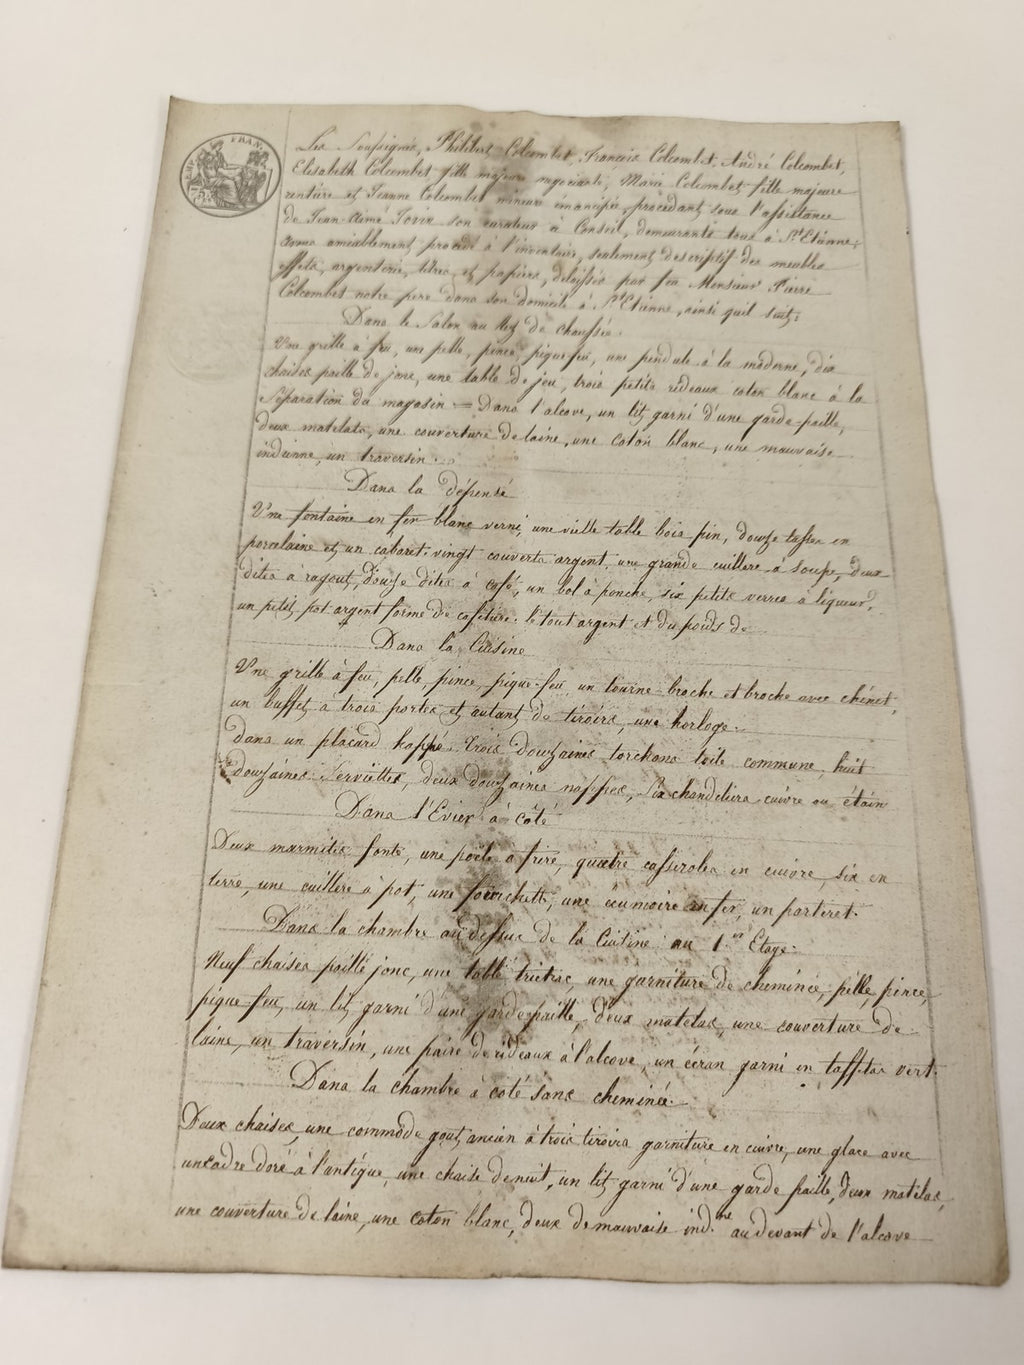 Les Soussignés, Philibert Colcombet, François Colcombet, André Colcombet,
Elisabeth Colcombet fille majeure negociante, Marie Colcombet fille majeure
rentière et Jeanne Colcombet mineure émancipée, procédant sous l'assistance
de Jean-Aimé Jovin son curateur à Conseil, demeurants tous à St Etienne,
amiablement procédé à l'inventaire, seulement descriptif des meubles
effets, argenterie, titres, et papiers, délaissés par feu Monsieur Pierre
Colcombet notre père dans son domicile à St Etienne, ainsi quil suit:
Dans le Salon au Rez de chaussée.
Une grille à feu, une pelle, pince, pique-feu, une pendule à la moderne, dix
chaises paille de jonc, une table de jeu, trois petits rideaux coton blanc à la
séparation du magasin = Dans l'alcove, un lit garni d'une garde-paille,
deux matelats, une couverture de laine, une coton blanc, une mauvaise
indienne, un traversin.
Dans la dépense
Une fontaine en fer blanc verni, une vielle table bois pin, douze tasses en
porcelaine et un cabaret. vingt couverts argent, une grande cuillere à soupe, deux
dites à ragout, douze dites à café, un bol à ponche, six petits verres à liqueur,
un petit pot argent forme de cafetière. le tout argent et du poids de
Dans la Cuisine
Une grille à feu, pelle, pince, pique-feu, un tourne broche et broche avec chenet,
un buffet à trois portes et autant de tiroirs, une horloge.
dans un placard trois douzaines torchons toile commune, huit
douzaines Serviettes, deux douzaines nappes, six chandeliers cuivre ou étain
Dans l'Evier à côté
Deux marmites fonte, une poële à frire, quatre casseroles en cuivre, six en
terre, une cuillere à pot, une fourchette, une écumoire en fer, un parteret.
Dans la chambre au dessus de la Cuisine au 1er Etage.
Neuf chaises paille jonc, une table trictrac, une garniture de cheminée, pelle, pince,
pique-feu, un lit garni d'une garde paille, deux matelas, une couverture de
laine, un traversin, une paire de rideaux à l'alcove, un écran garni en taffetas vert.
Dans la chambre à coté sans cheminée.
Deux chaises, une commode gout ancien à trois tiroirs garniture en cuivre, une glace avec
un cadre doré à l'antique, une chaise de nuit, un lit garni d'une garde paille, deux matelas,
une couverture de laine, une coton blanc, deux de mauvaise ind.ne au devant de l'alcove